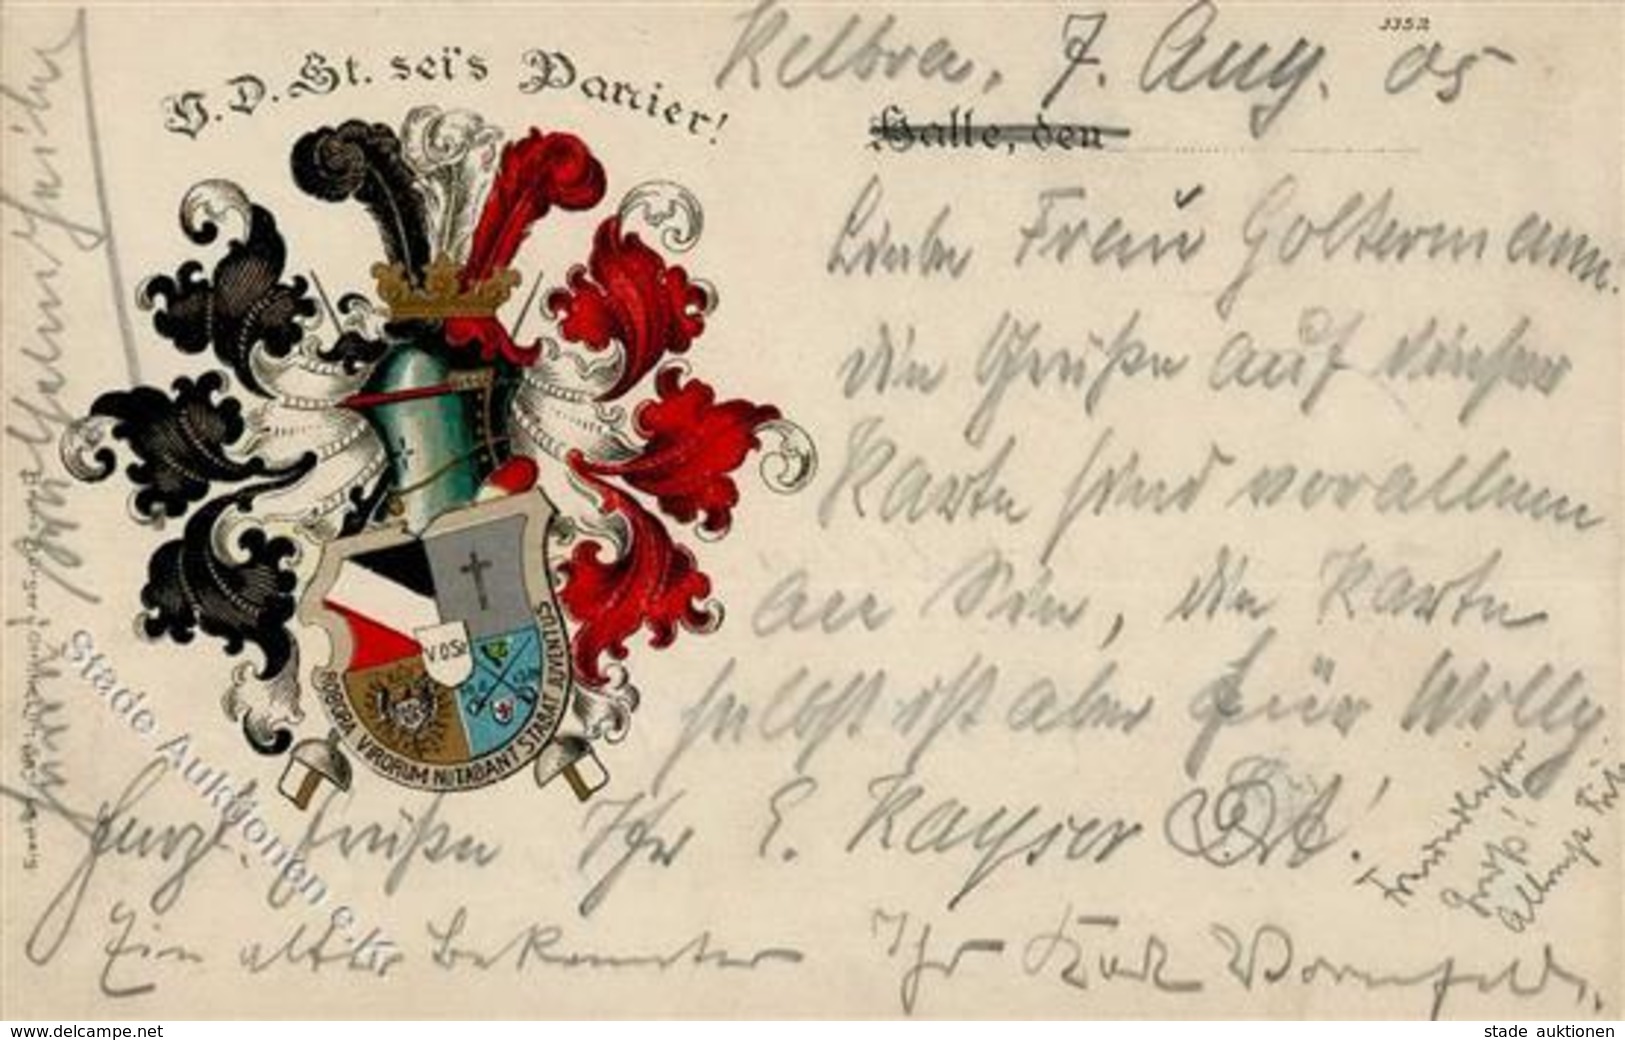 V.D.St. sei's Panier!
3352
Kelbra, 7. Aug. 05
Halle, den
Liebe Frau Goltermann.
die Grüße auf dieser
Karte sind vor allem
an Sie, die Karte
selbst ist aber für Willy
Herzl. Grüße Ihr E. Kayser
Ein alter Bekannter Ihr Karl Bornfeld.
Freundlicher
Gruß!
V.D.St.
ROBORA VIRORUM NUTABANT STARAT JUVENTUS
Stade Auktionen e.K.
www.delcampe.net
stade auktionen